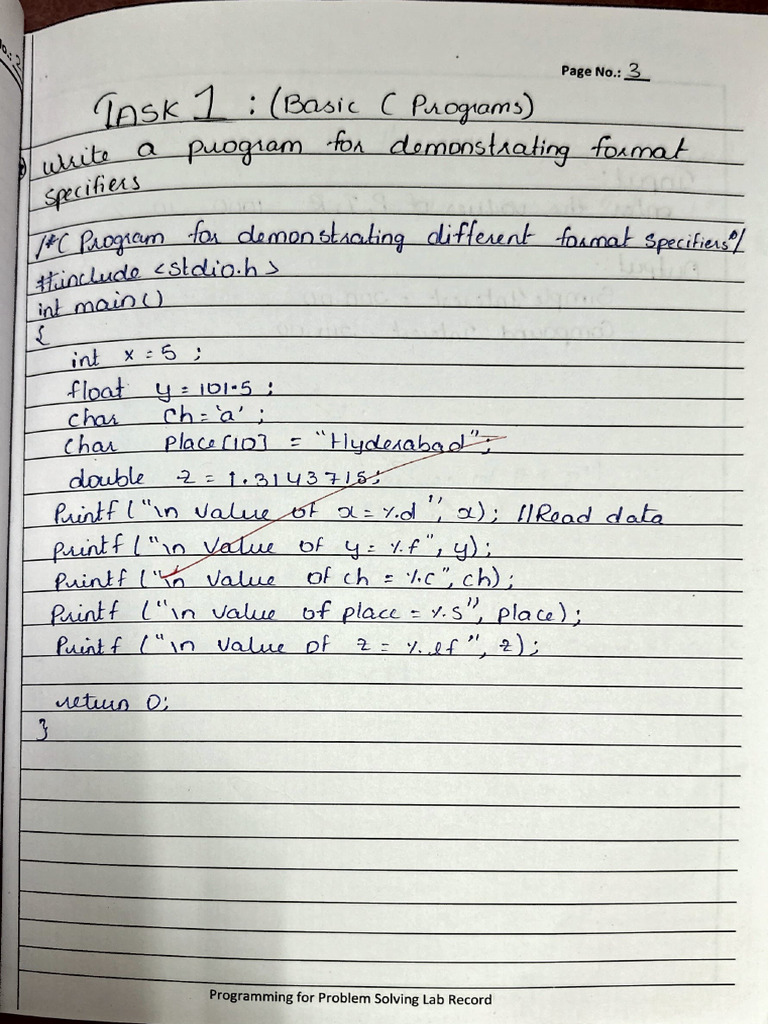 Page No.: 3
TASK 1 : (Basic C Programs)
Write a program for demonstrating format
specifiers
/*C Program for demonstrating different format specifiers*/
#include <stdio.h>
int main()
{
int x = 5 ;
float y = 101.5 ;
char ch = 'a' ;
char place[10] = "Hyderabad";
double z = 1.3143715;
Printf ("\n value of x = %d", x); //Read data
printf ("\n value of y = %f", y);
Printf ("\n value of ch = %c", ch);
Printf ("\n value of place = %s", place);
Printf ("\n value of z = %lf", z);
return 0;
}
Programming for Problem Solving Lab Record